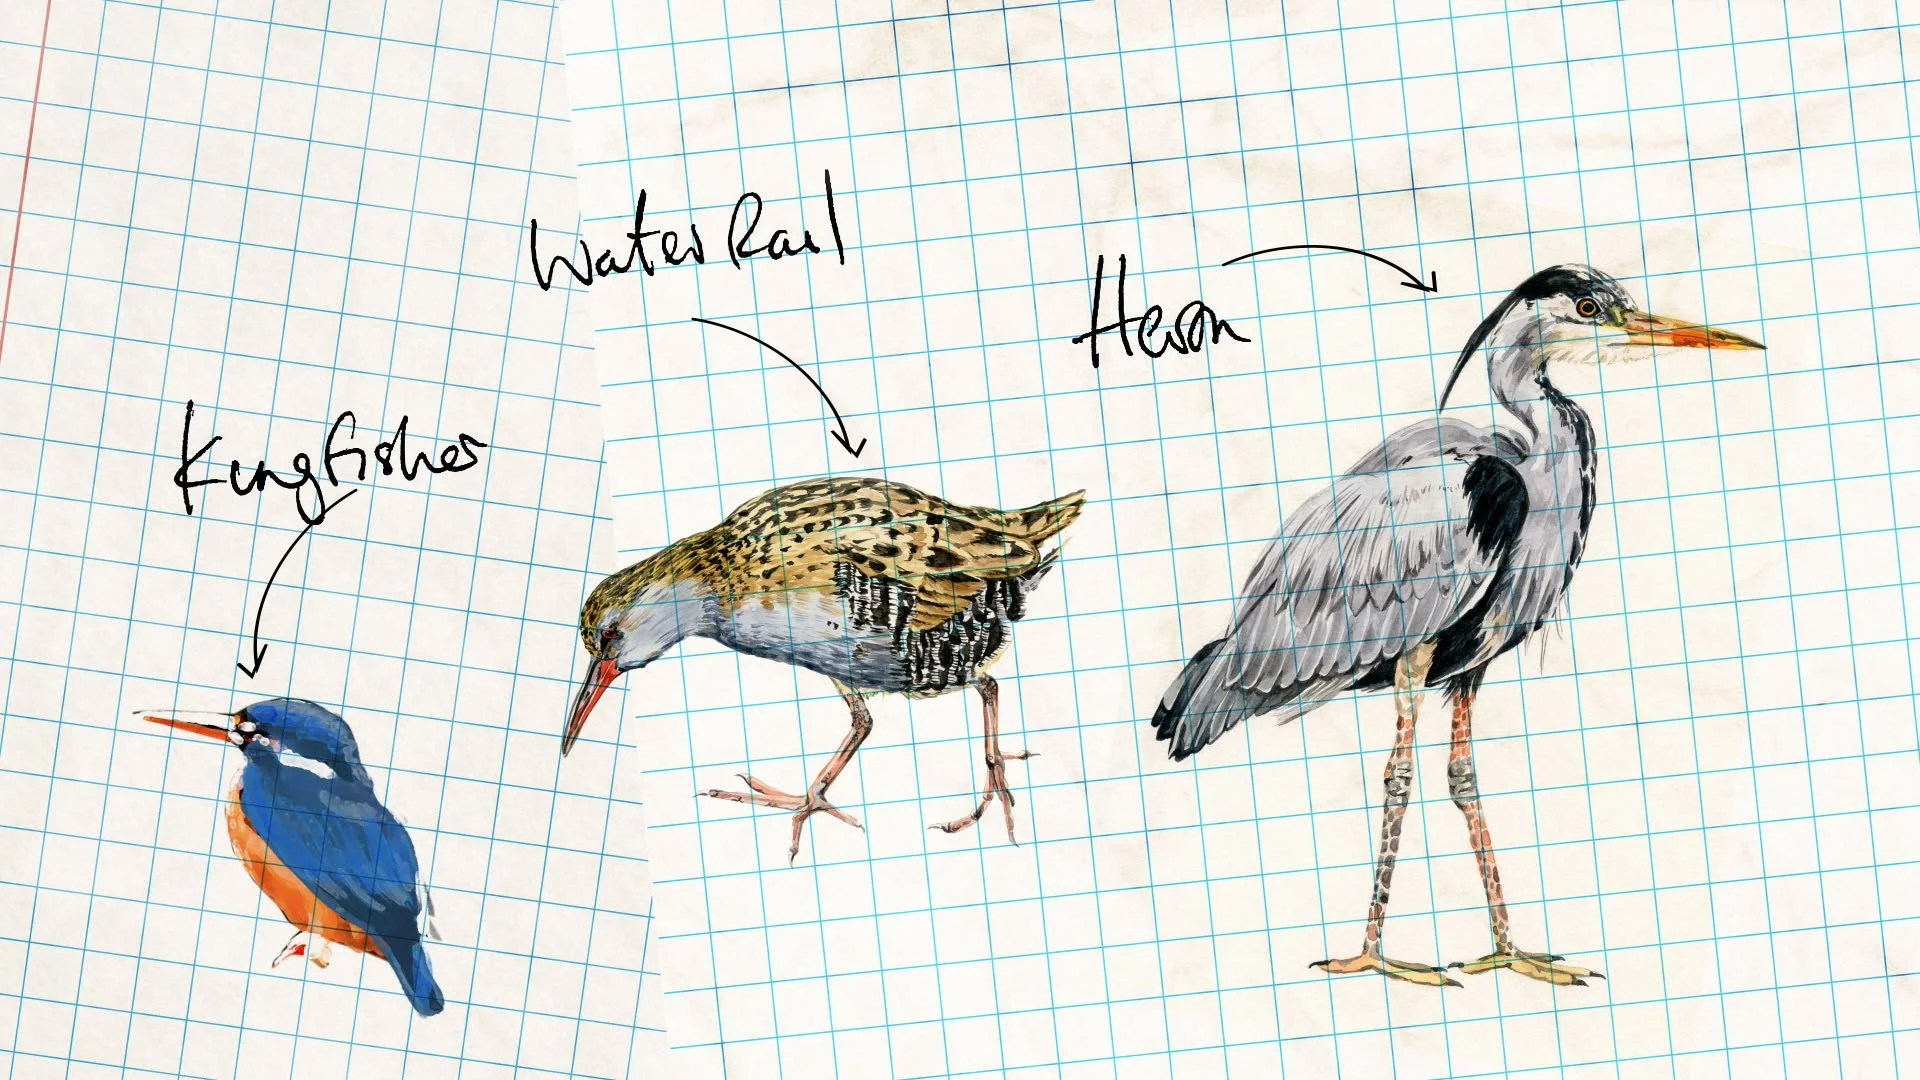 Water Rail
Heron
Kingfisher